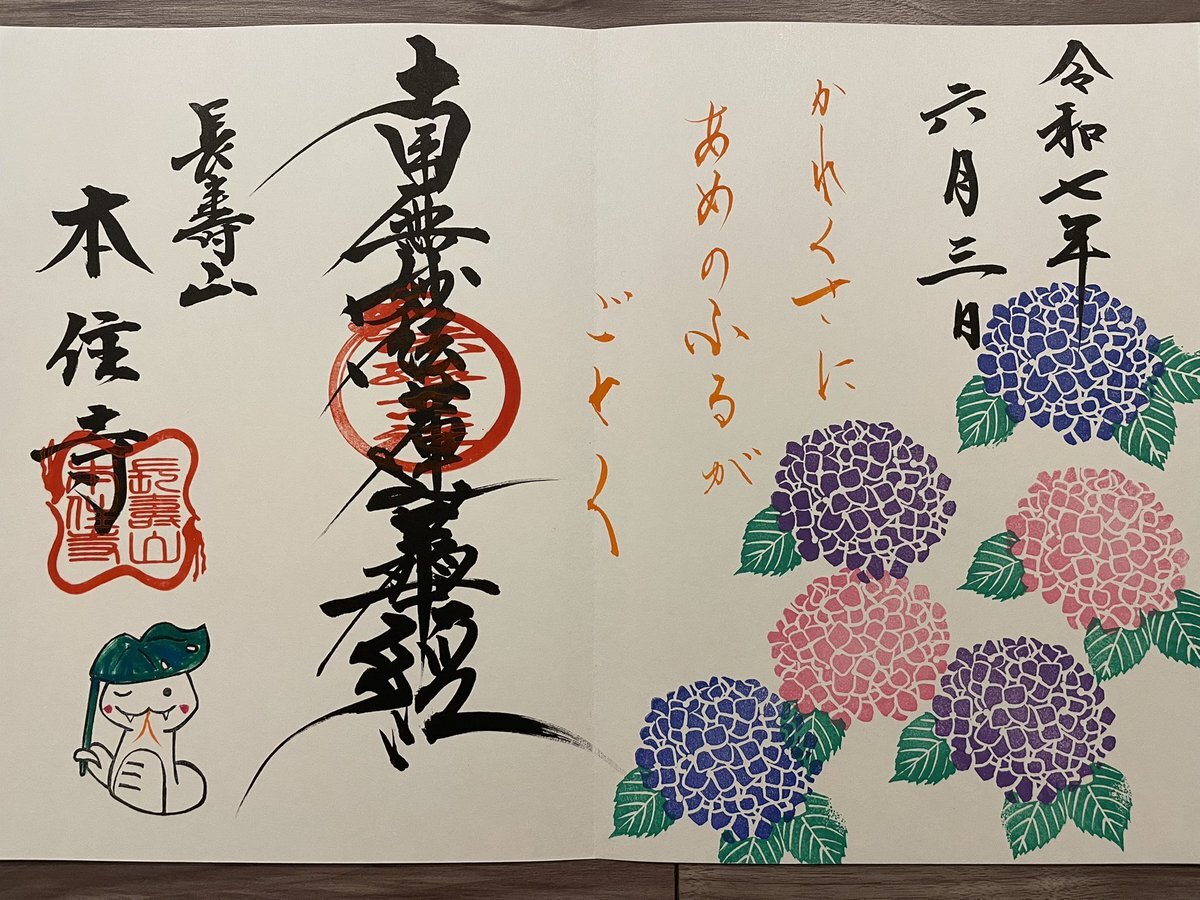 令和七年
六月三日
かれくさに
あめのふるが
ごとく
南無妙法蓮華経
長寿山
本住寺
長壽山
本住寺